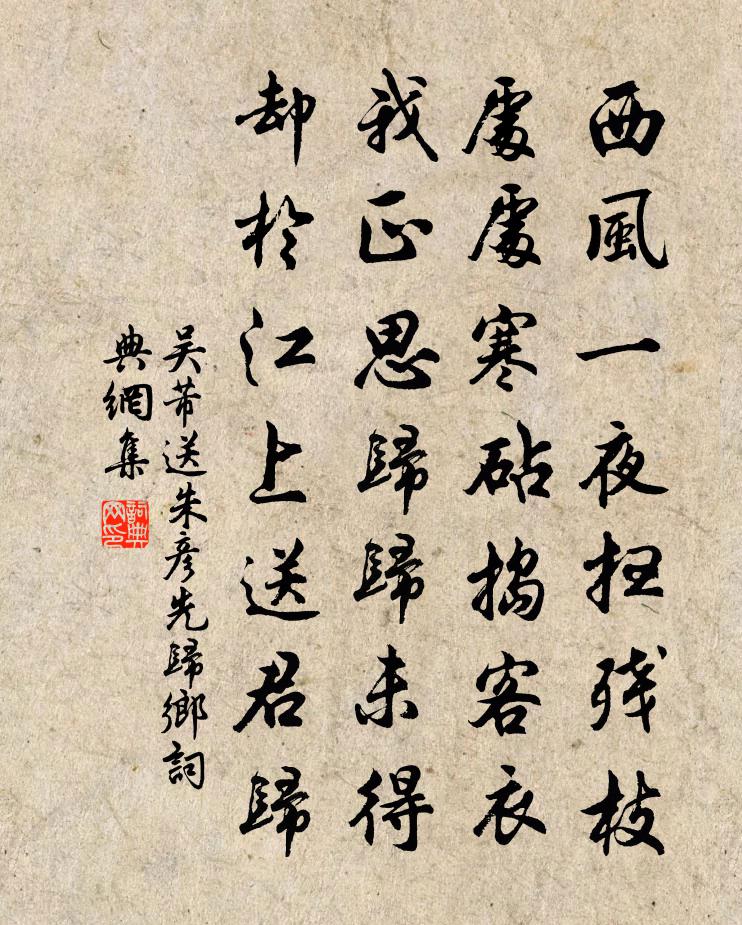 西風一夜扫残枝
處處寒砧搗客衣
我正思歸歸未得
却於江上送君歸
吴芾送朱彦先歸鄉詞
典網集
詞典
网印